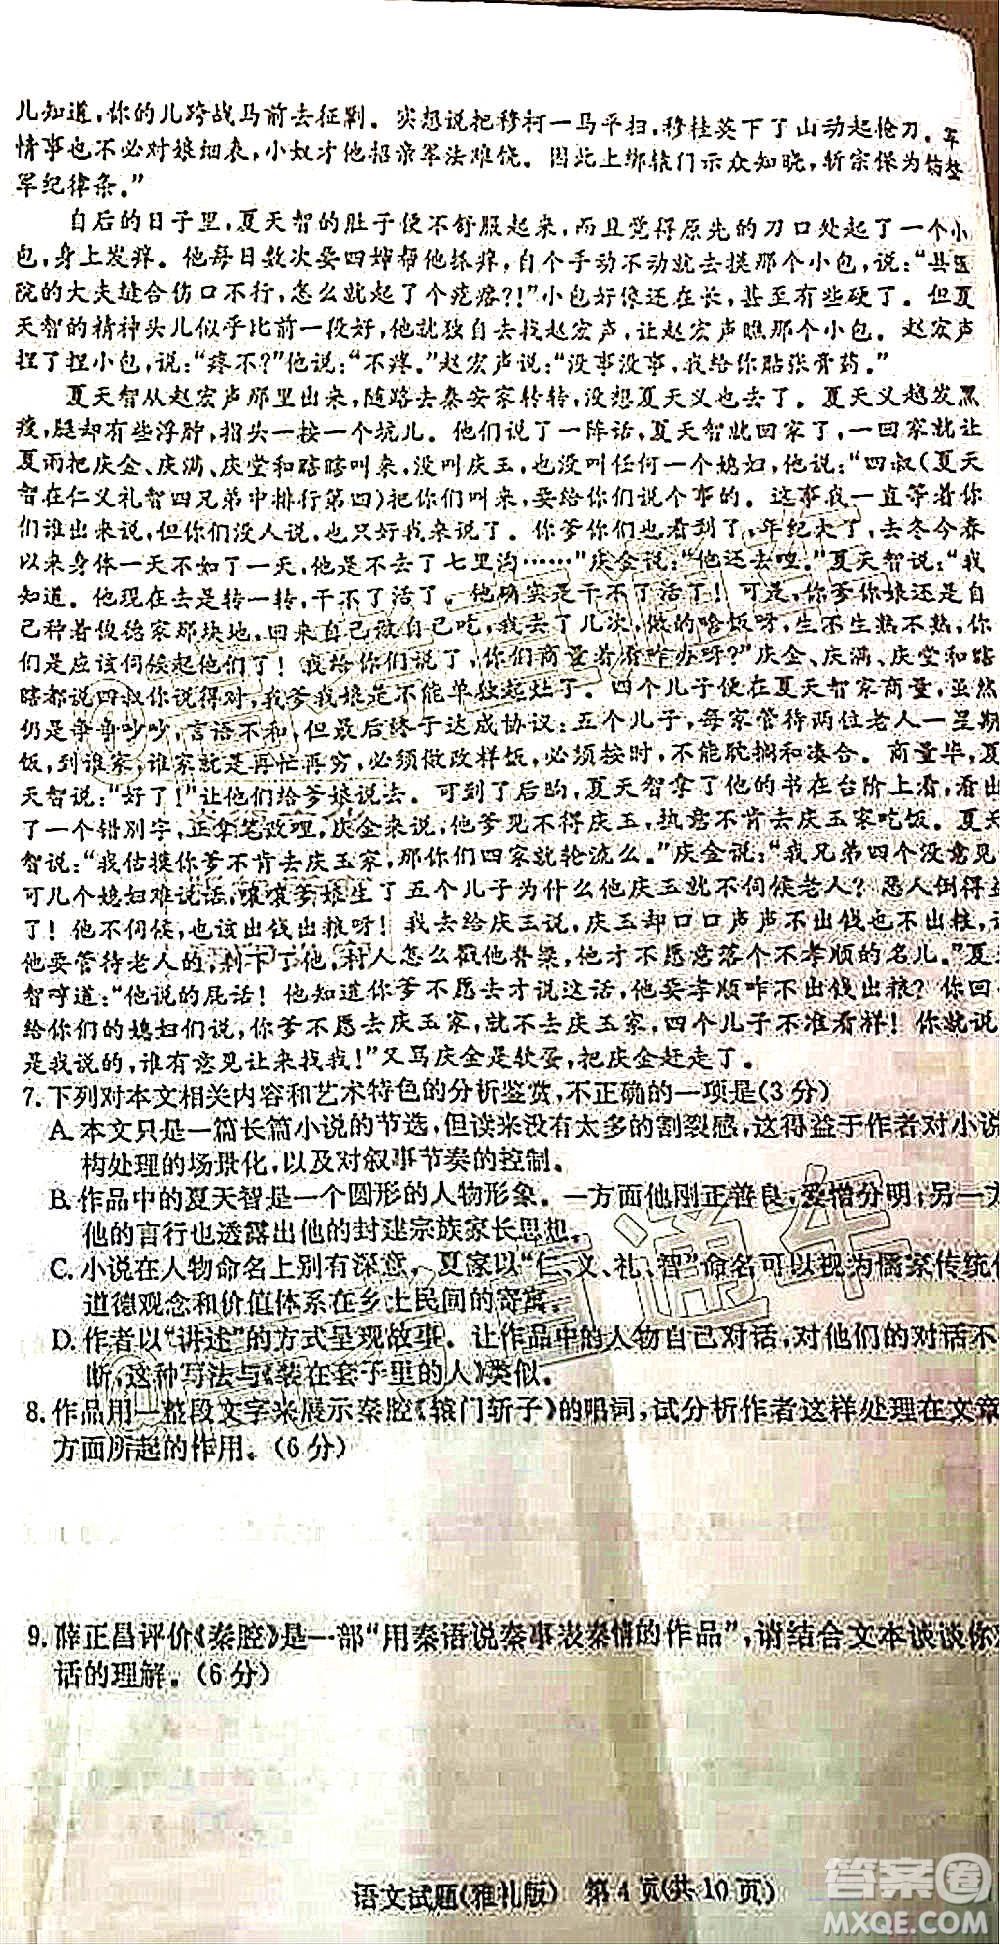 儿知道，你的儿跨战马前去征剿。实想说把穆柯一马平扫，穆桂英下了山动起枪刀。军
情事也不必对娘细表，小奴才他招亲军法难饶。因此上绑辕门示众知晓，斩宗保为的整
军纪律条。”
自后的日子里，夏天智的肚子便不舒服起来，而且觉得原先的刀口处起了一个小
包，身上发痒。他每日数次要四婶帮他抓痒，自个手动不动就去摸那个小包，说：“县医
院的大夫缝合伤口不行，怎么就起了个疙瘩？！”小包好像还在长，甚至有些硬了。但夏
天智的精神头儿似乎比前一段好，他就独自去找赵宏声，让赵宏声瞧那个小包。赵宏声
捏了捏小包，说：“疼不？”他说：“不疼。”赵宏声说：“没事没事，我给你贴张膏药。”
夏天智从赵宏声那里出来，随路去秦安家转转，没想夏天义也去了。夏天义越发黑
瘦，腿却有些浮肿，指头一按一个坑儿。他们说了一阵话，夏天智就回家了，一回家就让
夏雨把庆金、庆满、庆堂和瞎瞎叫来，没叫庆玉，也没叫任何一个媳妇，他说：“四叔（夏天
智在仁义礼智四兄弟中排行第四）把你们叫来，要给你们说个事的。这事我一直等着你
们谁出来说，但你们没人说，也只好我来说了。你爹你们也看到了，年纪大了，去冬今春
以来身体一天不如了一天，他是不去了七里沟……”庆金说：“他还去哩。”夏天智说：“我
知道。他现在去是转一转，干不了活了。他确实是干不了活了！可是，你爹你娘还是自
己种着俊德家那块地，回来自己做自己吃，我去了几次，做的啥饭呀，生不生熟不熟，你
们是应该伺候起他们了！我给你们说了，你们商量着看咋办呀？”庆金、庆满、庆堂和瞎
瞎都说四叔你说得对，我爹我娘是不能单独起灶了。四个儿子便在夏天智家商量，虽然
仍是争争吵吵，言语不和，但最后终于达成协议：五个儿子，每家管待两位老人一星期
饭，到谁家，谁家就是再忙再穷，必须做改样饭，必须按时，不能耽搁和凑合。商量毕，夏
天智说：“好了！”让他们给爹娘说去。可到了后晌，夏天智拿了他的书在台阶上看，看出
了一个错别字，正拿笔改理，庆金来说，他爹见不得庆玉，执意不肯去庆玉家吃饭。夏天
智说：“我估摸你爹不肯去庆玉家，那你们四家就轮流么。”庆金说：“我兄弟四个没意见，
可几个媳妇难说话，嚷嚷爹娘生了五个儿子为什么他庆玉就不伺候老人？恶人倒得益
了！他不伺候，也该出钱出粮呀！我去给庆玉说，庆玉却口口声声不出钱也不出粮，说
他要管待老人的，剩下了他，村人怎么戳他脊梁，他才不愿意落个不孝顺的名儿。”夏天
智哼道：“他说的屁话！他知道你爹不愿去才说这话，他要孝顺咋不出钱出粮？你回去
给你们的媳妇们说，你爹不愿去庆玉家，就不去庆玉家，四个儿子不准看样！你就说这
是我说的，谁有意见让来找我！”又骂庆金是软蛋，把庆金赶走了。
7. 下列对本文相关内容和艺术特色的分析鉴赏，不正确的一项是（3分）
A. 本文只是一篇长篇小说的节选，但读来没有太多的割裂感，这得益于作者对小说
构处理的场景化，以及对叙事节奏的控制。
B. 作品中的夏天智是一个圆形的人物形象。一方面他刚正善良，爱憎分明；另一方
他的言行也透露出他的封建宗族家长思想。
C. 小说在人物命名上别有深意。夏家以“仁、义、礼、智”命名可以视为儒家传统
道德观念和价值体系在乡土民间的寄寓。
D. 作者以“讲述”的方式呈现故事。让作品中的人物自己对话，对他们的对话不
断，这种写法与《装在套子里的人》类似。
8. 作品用一整段文字来展示秦腔《辕门斩子》的唱词，试分析作者这样处理在文章
方面所起的作用。（6分）
9. 薛正昌评价《秦腔》是一部“用秦语说秦事表秦情的作品”，请结合文本谈谈你
话的理解。（6分）
语文试题（雅礼版） 第4页（共10页）
答案圈
MXQE.COM